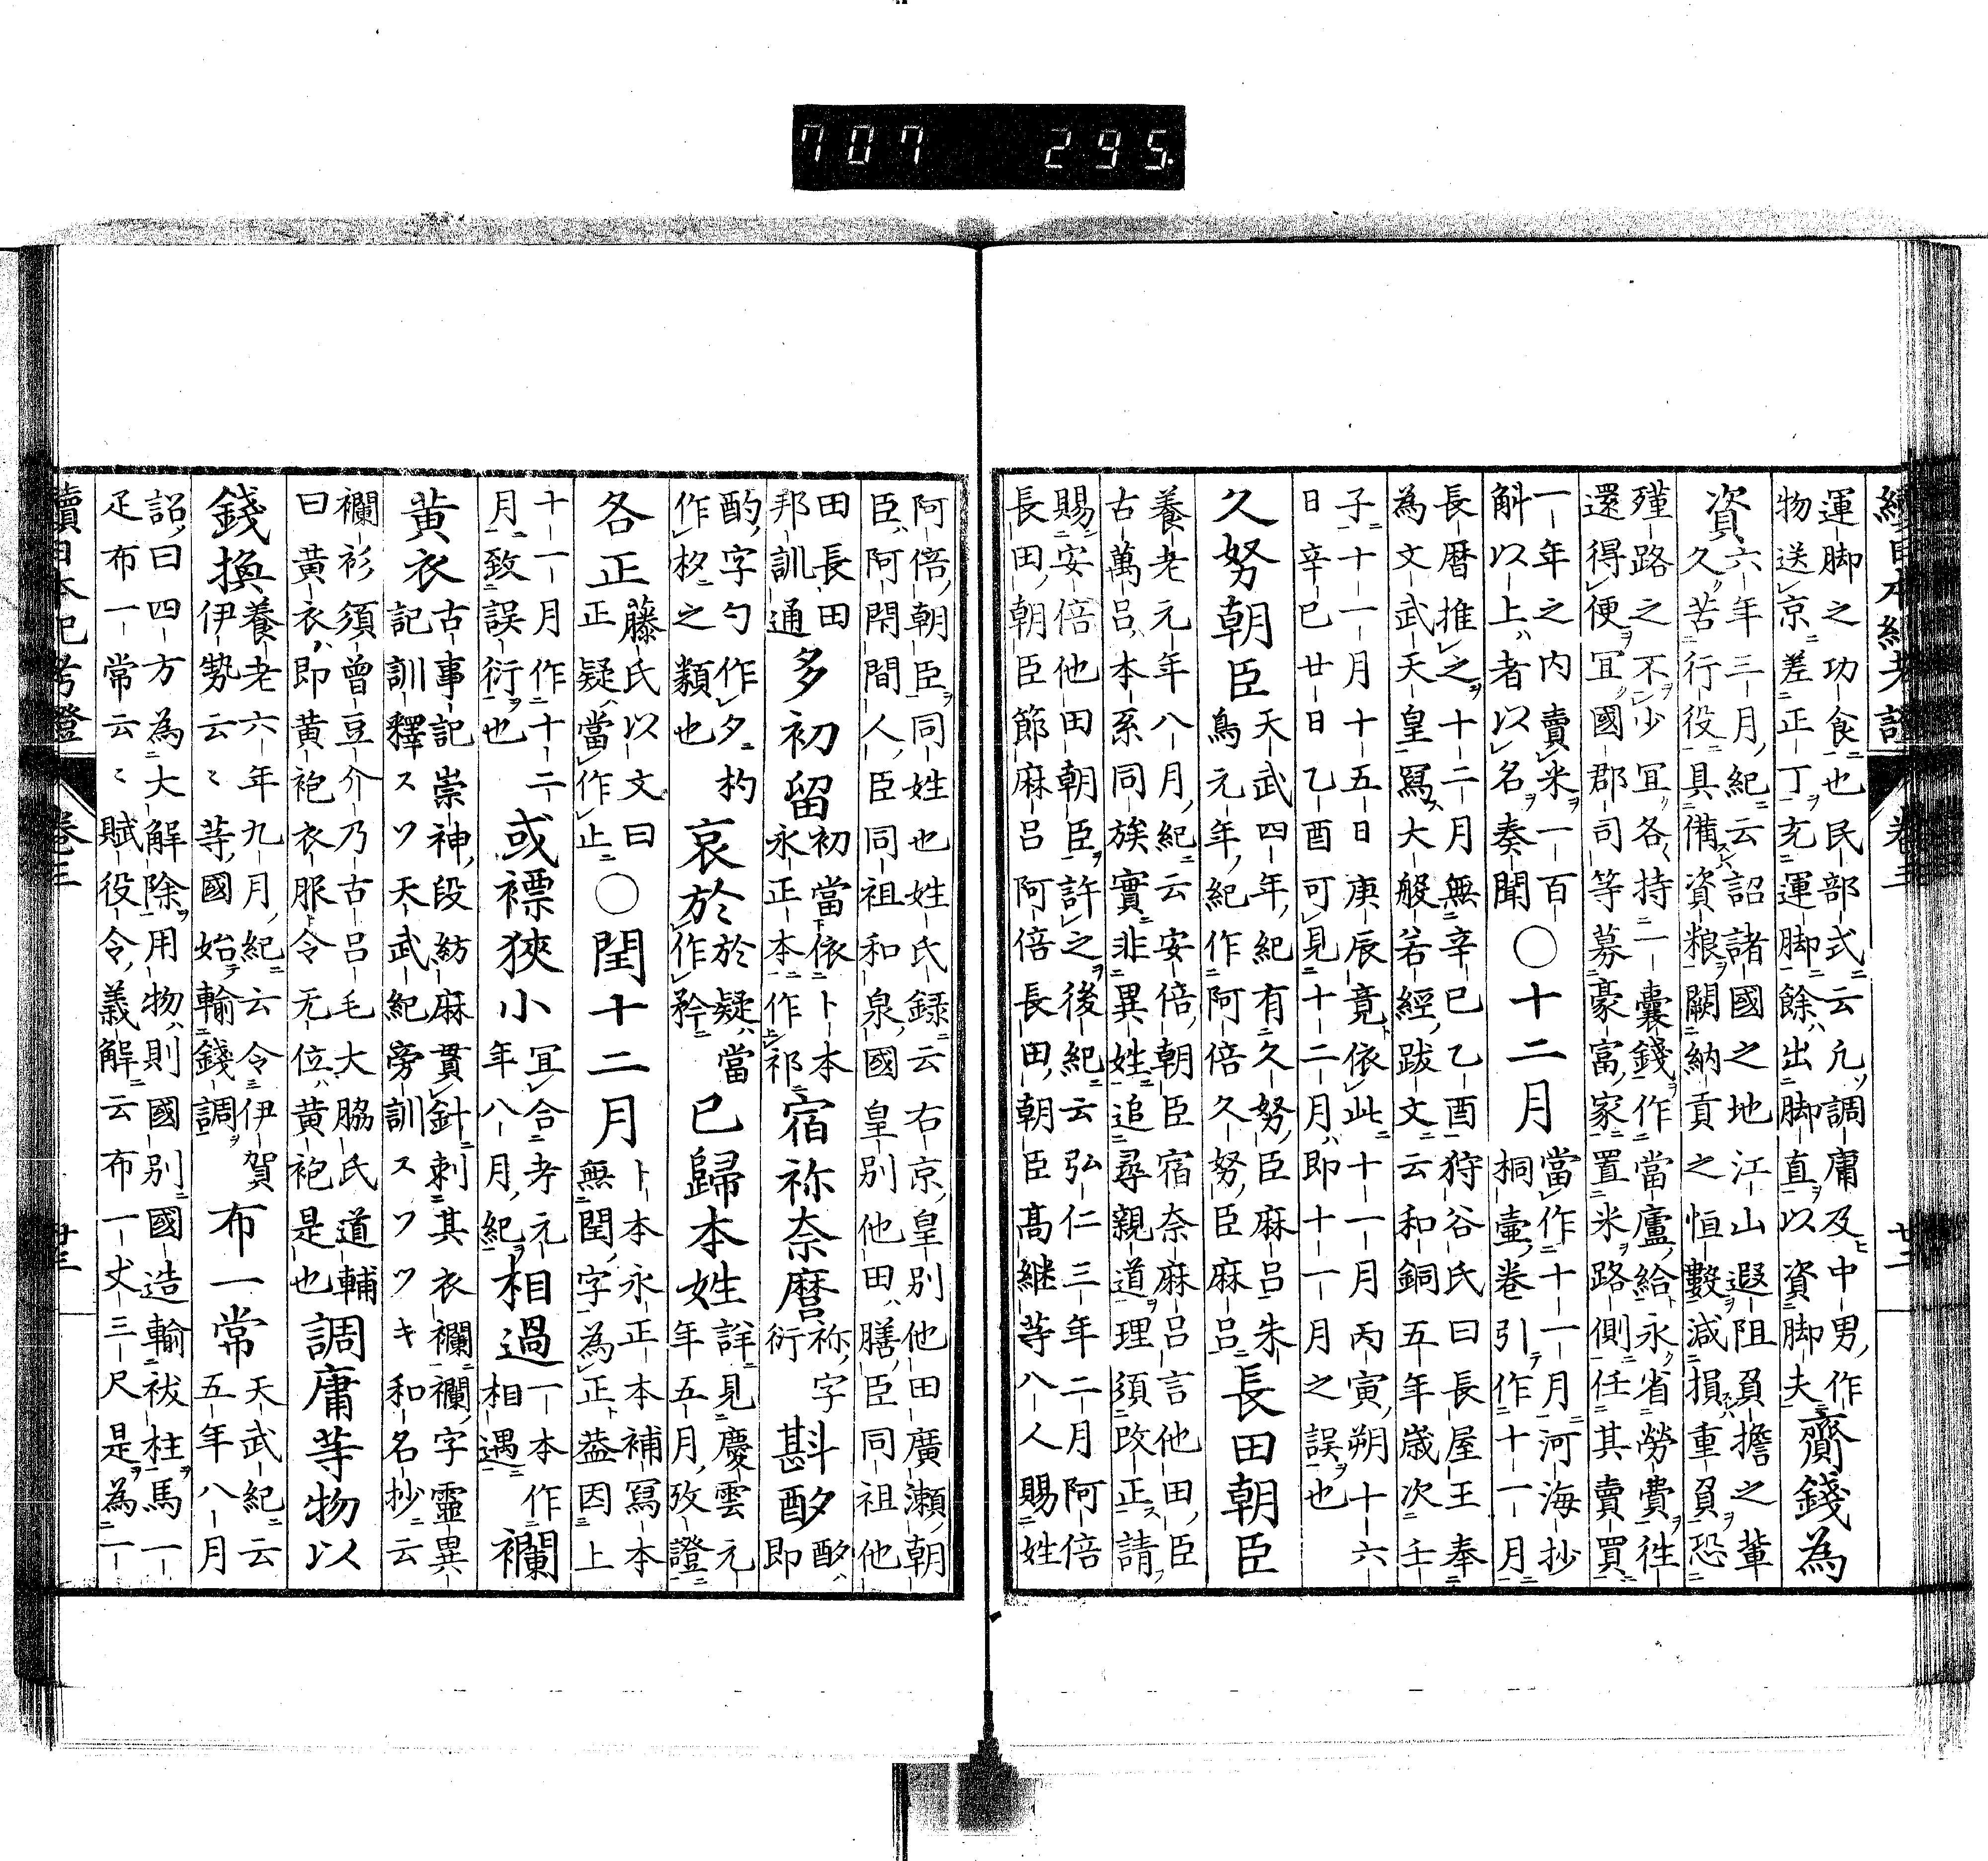 707 295
續日本紀考證 卷三 廿二
運脚之功食也民部式云凡調庸及中男作
物送京差正丁充運脚餘出脚直以資脚夫
齎錢為
資
六年三月紀云詔諸國之地江山遐阻負擔之輩
久苦行役具備資粮闕納貢之恒數減損重負恐
殣路之不少冝各持一囊錢作當廬給永省勞費徃
還得便冝國郡司等募豪富家置米路側任其賣買
一年之内賣米一百
斛以上者以名奏聞
〇十二月
當作十一月河海抄
桐壷卷引作十一月
長暦推之十二月無辛巳乙酉狩谷氏曰長屋王奉
為文武天皇寫大般若經跋文云和銅五年歳次壬
子十一月十五日庚辰竟依此十一月丙寅朔十六
日辛巳廿日乙酉可見十二月即十一月之誤也
久努朝臣
天武四年紀有久努臣麻呂朱
鳥元年紀作阿倍久努臣麻呂
長田朝臣
養老元年八月紀云安倍朝臣宿奈麻呂言他田臣
古萬呂本系同族實非異姓追尋親道理須改正請
賜安倍他田朝臣許之後紀云弘仁三年二月阿倍
長田朝臣節麻呂阿倍長田朝臣髙継等八人賜姓
阿倍朝臣同姓也姓氏録云右京皇別他田廣瀬朝
臣阿閇間人臣同祖和泉國皇別他田膳臣同祖他
田長田
邦訓通
多初留
初當依卜本
永正本作祁
宿祢奈麿
祢字
衍
斟酌
酌即
酌字勺作夕杓
作杦之類也
哀於
於疑當
作矜
已歸本姓
詳見慶雲元
年五月攷證
各正
藤氏以文曰
正疑當作止
〇閏十二月
卜本永正本補寫本
無閏字為正葢因上
十一月作十二
月致誤衍也
或褾狹小
冝合考元
年八月紀
相過
一本作
相遇
襴
黄衣
古事記崇神段紡麻貫針刺其衣襴襴字靈異
記訓釋スソ天武紀旁訓スソツキ和名抄云
襴衫須曾豆介乃古呂毛大脇氏道輔
曰黄衣即黄袍衣服令无位黄袍是也
調庸等物以
錢換
養老六年九月紀云令伊賀
伊勢云〻等國始輸錢調
布一常
天武紀云
五年八月
詔曰四方為大解除用物則國別國造輸祓柱馬一
疋布一常云〻賦役令義解云布一丈三尺是為一
續日本紀考證 卷三 廿三